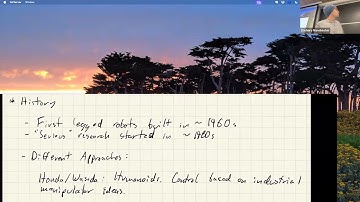 * History
- First legged robots built in ~ 1960s
- "Serious" research started in ~ 1980s
- Different Approaches:
Honda/Waseda: Humanoids. Control based on industrial
manipulator ideas.